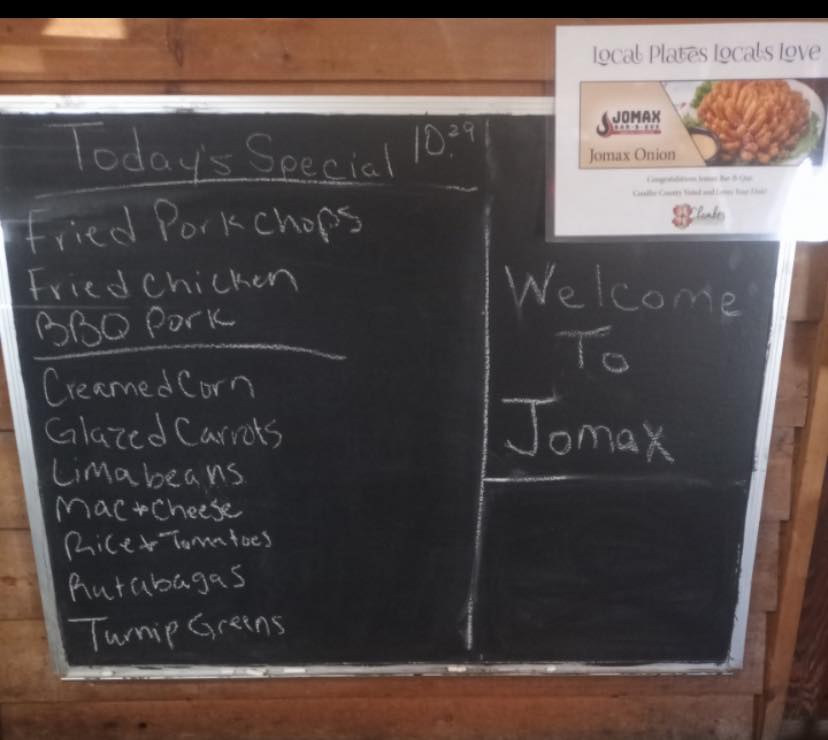 Today's Special 10.29
Fried Pork chops
Fried chicken
BBQ Pork
Creamed Corn
Glazed Carrots
Lima beans
Mac + Cheese
Rice + Tomatoes
Rutabagas
Turnip Greens
Welcome
To
Jomax
Local Plates Locals Love
JOMAX
BAR-B-QUE
Jomax Onion
Congratulations Jomax Bar-B-Que
Candler County Voted and Loves Your Dish!
Chamber